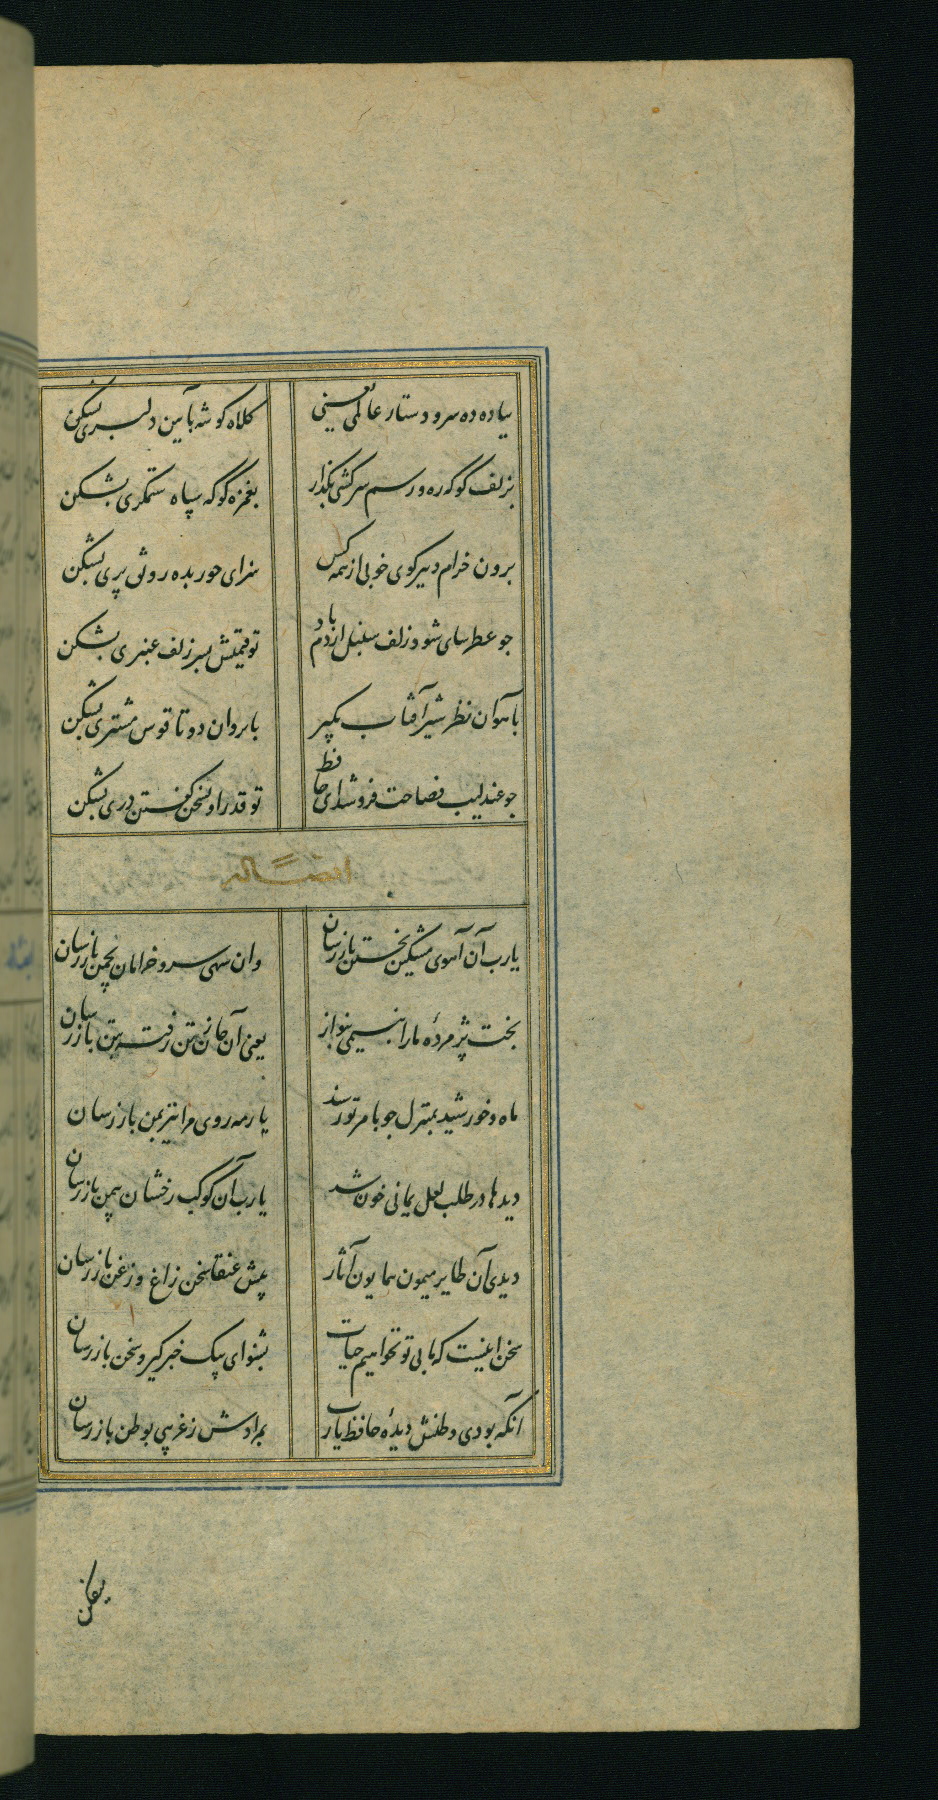 بباده ده سر و دستار عالمی یعنی
کلاه گوشه بآیین دلبری بشکن
بزلف گو که ره و رسم سرکشی بگذار
بغمزه گو که سپاه ستمگری بشکن
برون خرام و ببر گوی خوبی از همه کس
سزای حور بده رونق پری بشکن
چو عطر سای شود زلف سنبل از دم باد
تو قیمتش بسر زلف عنبری بشکن
بآهوان نظر شیر آفتاب بگیر
بابروان دو تا قوس مشتری بشکن
چو عندلیب فصاحت فروشد ای حافظ
تو قدر او بسخن گفتن دری بشکن
ایضاً له
یارب آن آهوی مشکین بختن باز رسان
وان سهی سرو خرامان بچمن باز رسان
بخت پژمرده ما را بنسیمی بنواز
یعنی آن جان ز تن رفته بتن باز رسان
ماه و خورشید بمنزل چو بامر تو رسند
یار مه روی مرا نیز بمن باز رسان
دیدها در طلب لعل یمانی خون شد
یارب آن کوکب رخشان بیمن باز رسان
دیدی آن طایر میمون همایون آثار
پیش عنقا سخن زاغ و زغن باز رسان
سخن اینست که ما بی تو نخواهیم حیات
بشنو ای پیک خبر گیر و سخن باز رسان
آنکه بودی وطنش دیدهٔ حافظ یارب
بمرادش ز غریبی بوطن باز رسان